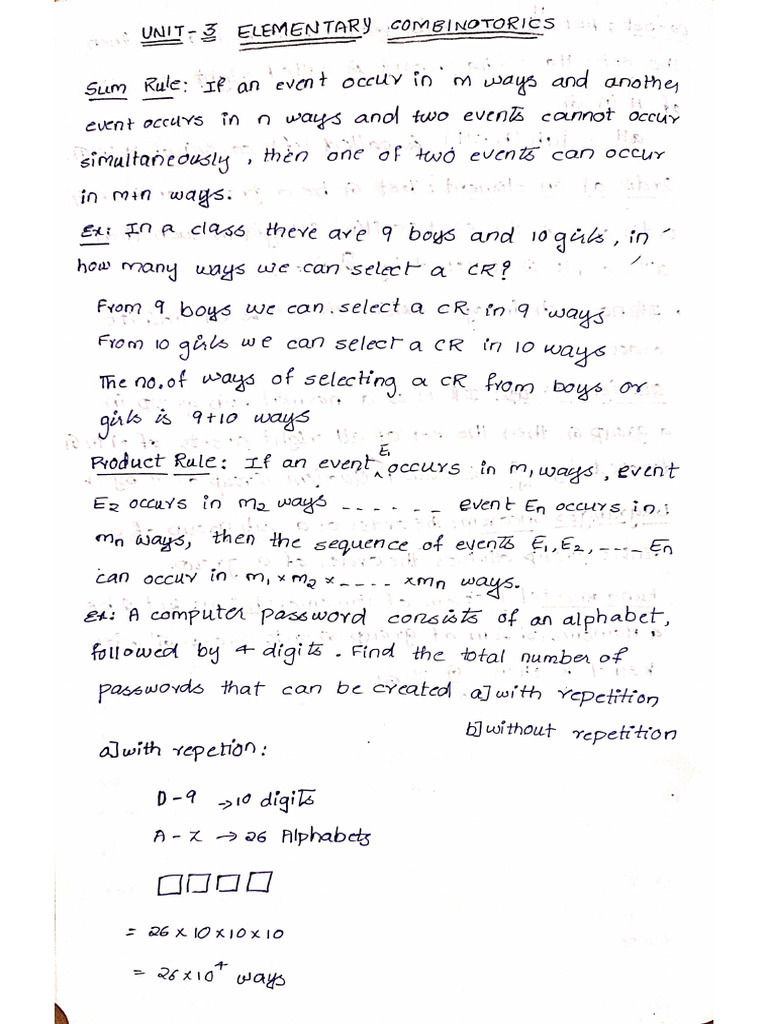 UNIT-3 ELEMENTARY COMBINOTORICS
Sum Rule: If an event occur in m ways and another
event occurs in n ways and two events cannot occur
simultaneously, then one of two events can occur
in m+n ways.
Ex: In a class there are 9 boys and 10 girls, in
how many ways we can select a CR?
From 9 boys we can select a CR in 9 ways
From 10 girls we can select a CR in 10 ways
The no. of ways of selecting a CR from boys or
girls is 9+10 ways
Product Rule: If an event E1 occurs in m1 ways, event
E2 occurs in m2 ways ------ event En occurs in
mn ways, then the sequence of events E1, E2, ---- En
can occur in m1 × m2 × ---- × mn ways.
Ex: A computer password consists of an alphabet,
followed by 4 digits. Find the total number of
passwords that can be created a] with repetition
b] without repetition
a] with repetion:
0-9 → 10 digits
A-Z → 26 Alphabets
= 26 × 10 × 10 × 10
= 26×10⁴ ways